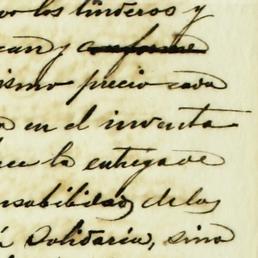 los linderos y
can y conforme
ismo precio cada
en el inventa
ce la entrega de
nsabilidad de los
solidaria, sino